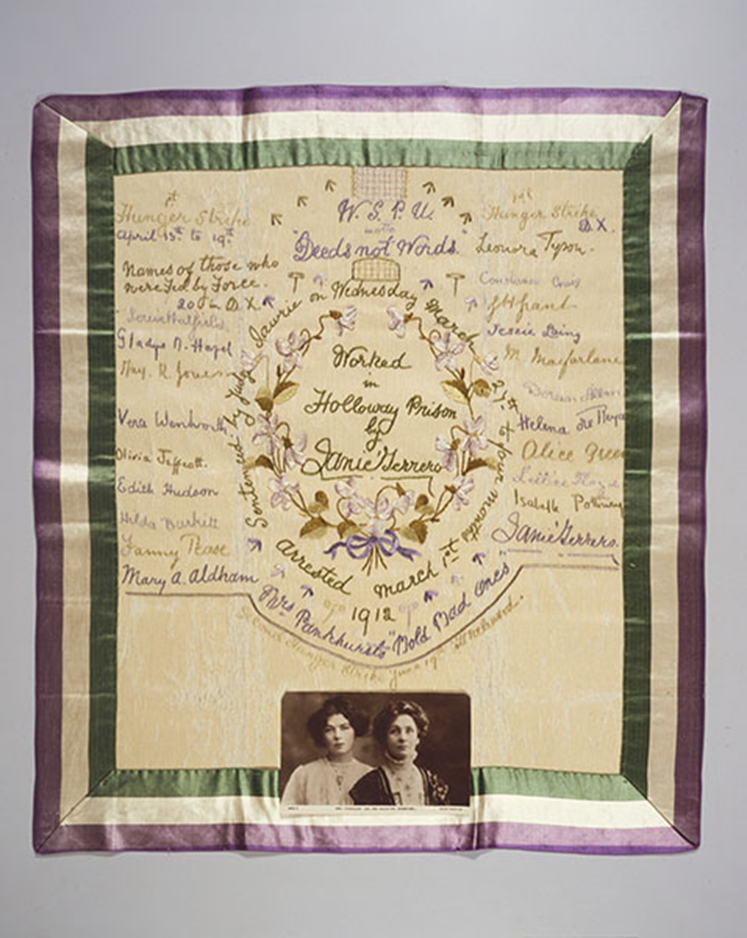 W. S. P. U.
motto
"Deeds not Words."
1st
Hunger Strike
April 13th to 19th
Names of those who
were Fed by Force.
20 in D X.
Gladys M. Hazel
May. R. Jones
Vera Wentworth
Olivia Jeffcott.
Edith Hudson
Hilda Burkitt
Fanny Pease
Mary A. Aldham
Sentenced by Judge Lawrie on Wednesday March 27th to four months
Worked
in
Holloway Prison
by
Janie Terrero
arrested March 1st
1912
Mrs Pankhursts "Bold Bad Ones"
Second Hunger Strike June 19th
1st
Hunger Strike
D X.
Leonora Tyson.
Jessie Laing
M. Macfarlane
Helena de
Alice Green
Isabelle
Janie Terrero.